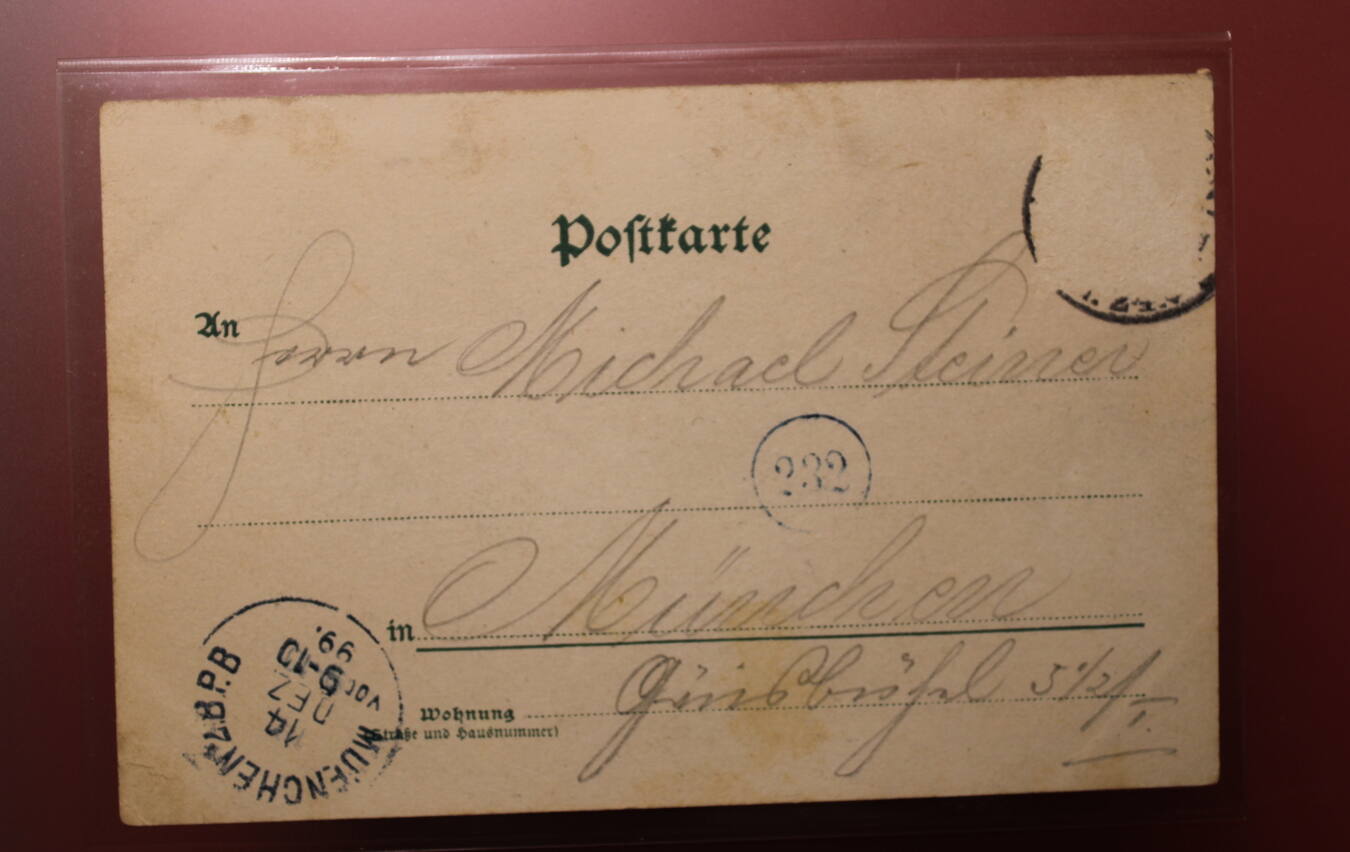 Postkarte
An Herrn Michael Steiner
232
in München
Wohnung
(Straße und Hausnummer)
5 1/2/I.
MUENCHEN 2 B.P.B
14
DEZ
VOR 9-10
99.